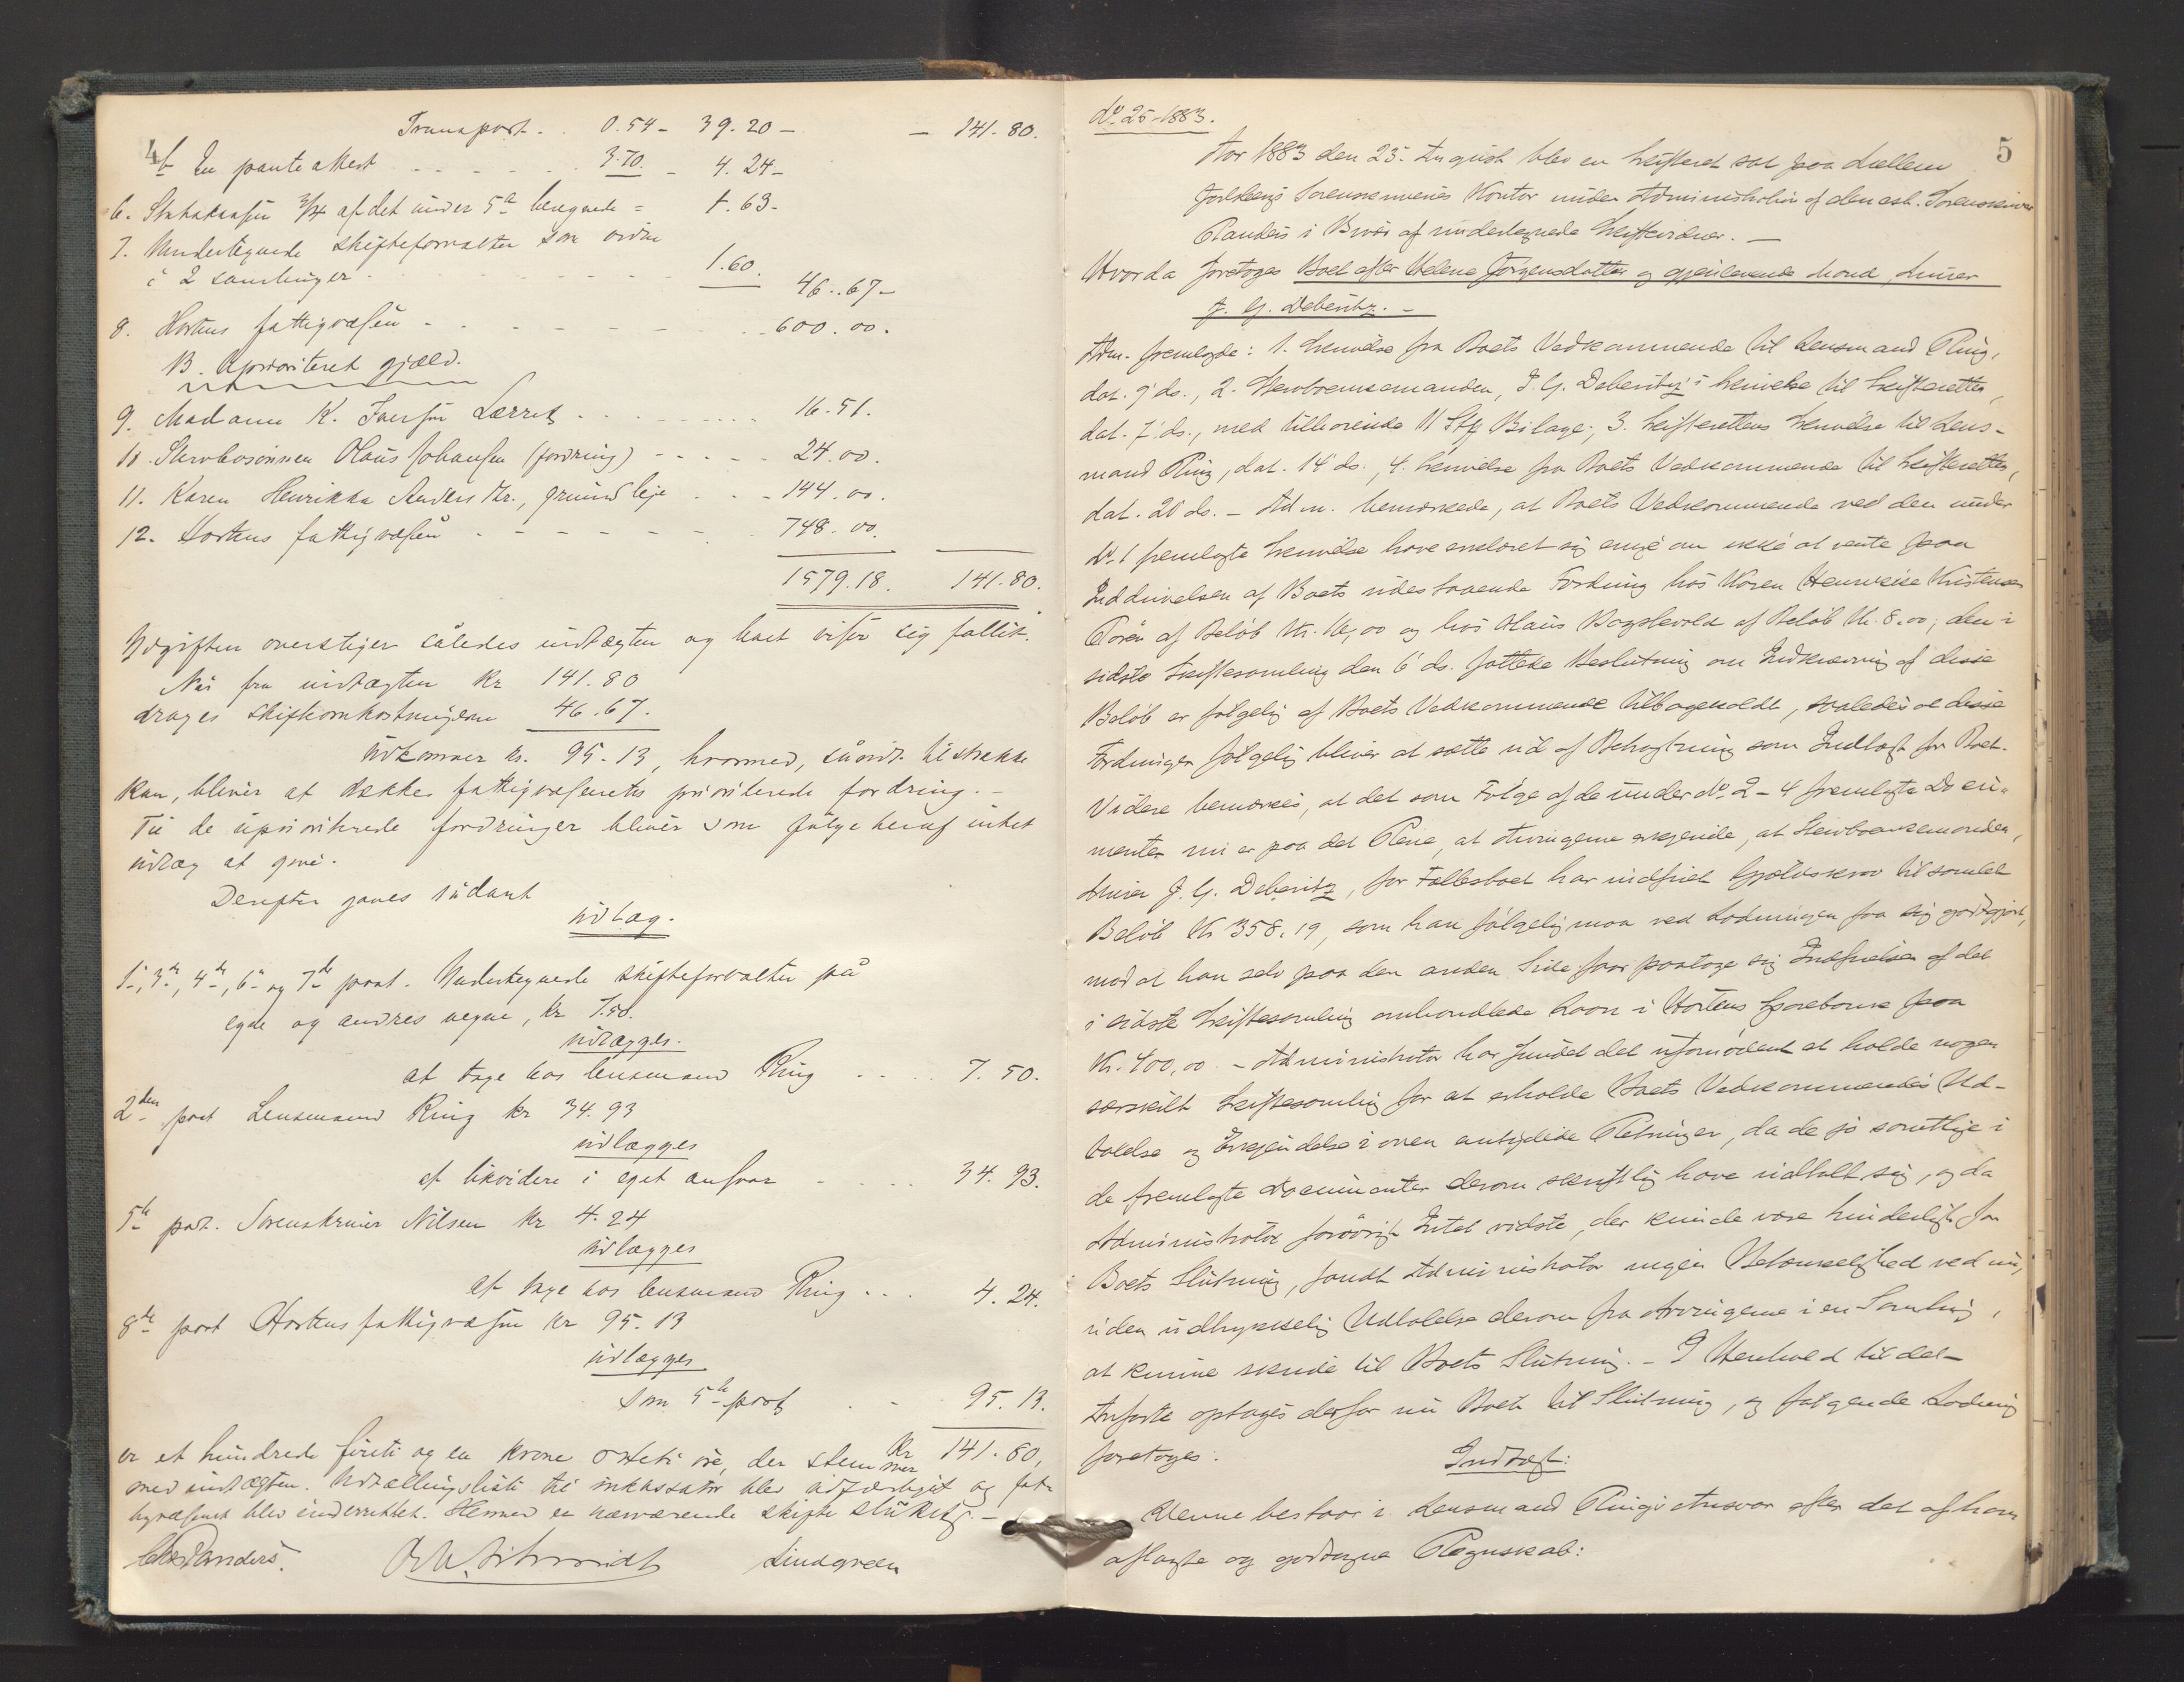 Transport . . 0.54 - 39.20 - - 141.80.
4
b En panteattest - - - - - - 3.70 - 4.24 -
6. Statskassen 3/4 af det under 5te beregnede = 1.63 -
7. Undertegnede skifteforvalter som vidne
i 2 samlinger - - - - - - 1.60. 46.67 -
8. Hortens fattigvæsen - - - - - - 600.00.
B. Uprioriteret gjæld.
9. Madame K. Iversen Lærret - - - - 16.51.
10. Stervbosønnen Olaus Johansen (fordring) - - - - 24.00.
11. Karen Henrikka Anders Dtr., grundleje - - - 144.00.
12. Hortens fattigvæsen - - - - - - 748.00.
1579.18. 141.80.
Udgiften overstiger således indtægten og boet viser sig fallit.
Når fra indtægten kr 141.80
drages skifteomkostningerne 46.67.
udkommer kr. 95.13, hvormed, såvidt tilstrække
kan, bliver at dække fattigvæsenets prioriterede fordring. -
Til de uprioriterede fordringer bliver som følge heraf intet
udlæg at give.
Derefter gaves sådant
udlæg.
1ste, 3de, 4de, 6te og 7de post. Undertegnede skifteforvalter på
egne og andres vegne, kr 7.50.
udlægges.
at tage hos lensmand Ring - - . . 7.50.
2den post Lensmand Ring kr 34.93
udlægges
at likvidere i eget ansvar - - - - 34.93.
5te post. Sorenskriver Nilsen kr 4.24
udlægges
at tage hos lensmand Ring . . . 4.24.
8de post Hortens fattigvæsen kr 95.13
udlægges
som 5te post . - 95.13.
er et hundrede fireti og en krone otteti øre, der stemmer kr 141.80,
med indtægten. Udtællingsliste til inkassator blev udfærdiget og fat-
tigvæsenet blev underrettet. Hermed er nærværende skifte sluttet. -
Lindgreen
No. 25-1883.
5
Aar 1883 den 25. August blev en Skifteret sat paa Mellem
Jarlsbergs Sorenskriveries Kontor under Administration af den est. Sorenskriver
Randers i Bivær af undertegnede Skiftevidner. -
Hvorda foretoges Boet efter Helene Jørgensdatter og gjenlevende Mand, Murer
J. G. Deberitz. -
Adm. fremlagde: 1. Skrivelse fra Boets Vedkommende til Lensmand Ring,
dat. 9' ds., 2. Stervboenkemanden, J. G. Deberitz's Skrivelse til Skifteretten,
dat. 7' ds., med tilhørende 11 Stk Bilage; 3. Skifterettens Skrivelse til Lens-
mand Ring, dat. 14' ds., 4. Skrivelse fra Boets Vedkommende til Skifteretten,
dat. 20' ds. - Adm. bemærkede, at Boets Vedkommende ved den under
No. 1 fremlagte Skrivelse have erklæret sig enige om ikke at vente paa
Inddrivelsen af Boets udestaaende Fordring hos Karen Henrikke Kristensen
af Beløb Kr. 16,00 og hos Olaus Bogslevold af Beløb Kr. 8.00; den i
sidste Skiftesamling den 6' ds. fattede Beslutning om Indkrævning af disse
Beløb er følgelig af Boets Vedkommende tilbagekaldt, saaledes at disse
Fordringer følgelig bliver at sætte ud af Betragtning som Indtægt for Boet.
Videre bemærkes, at det som Følge af de under No. 2 - 4 fremlagte Docu-
menter nu er paa det Rene, at Arvingerne erkjende, at Stervboenkemanden,
Murer J. G. Deberitz, for Fællesboet har indfriet Gjældskrav til samlet
Beløb Kr 358.19, som han følgelig maa ved Lodningen faa sig godtgjort,
mod at han selv paa den anden Side faar paatage sig Indfrielsen af det
i sidste Skiftesamling omhandlede Laan i Hortens Sparebank paa
Kr. 400,00. - Administrator har fundet det ufornødent at holde nogen
særskilt Skiftesamling for at erholde Boets Vedkommendes Ud-
talelse og Erkjendelse i oven antydede Retninger, da de jo samtlige i
de fremlagte Documenter derom skriftlig have udtalt sig, og da
Administrator forøvrigt Intet vidste, der kunde være hinderligt for
Boets Slutning, fandt Administrator ingen Betænkelighed ved nu,
uden udtrykkelig Udtalelse derom fra Arvingerne i en Samling,
at kunne skride til Boets Slutning. - I Henhold til det -
Anførte optoges derfor nu Boet til Slutning, og følgende Lodning
foretoges:
Indtægt:
Denne bestaar i Lensmand Rings Ansvar efter det af ham
aflagte og godtagne Regnskab: